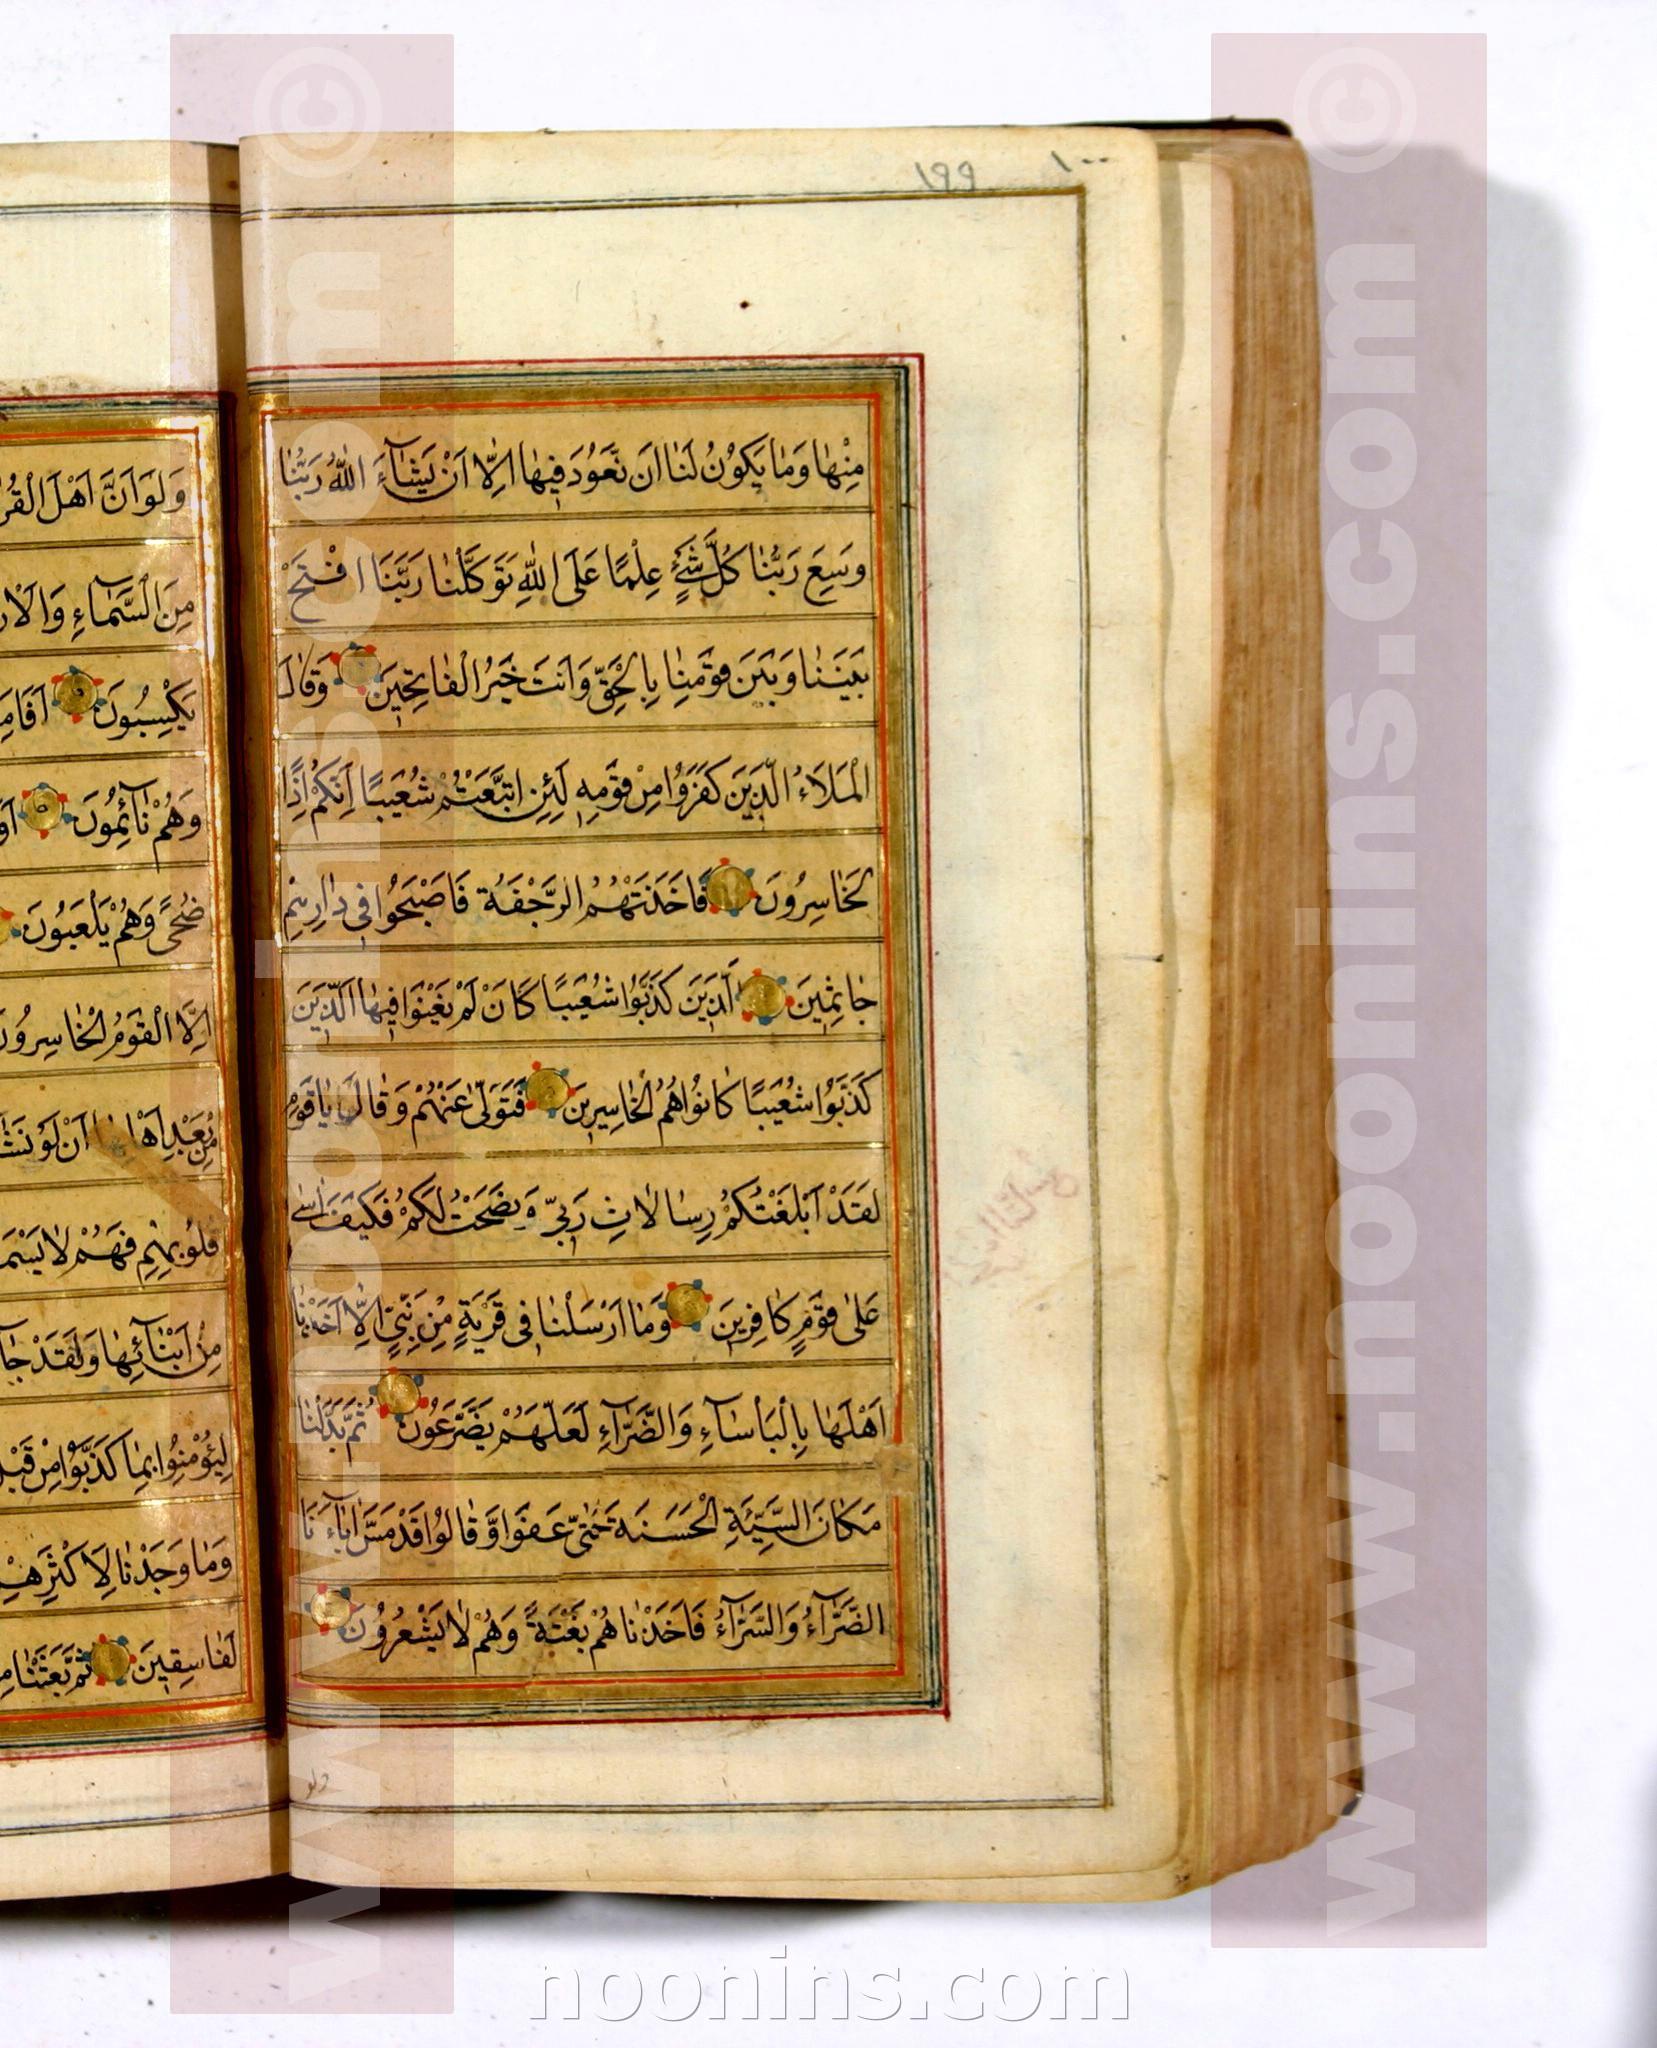 ۱۹۹
۱۰۰
مِنْهَا وَمَا يَكُوْنُ لَنَا اَنَ نَعُوْدَ فِيهَا اِلَّا اَنْ يَشَآءَ اللهُ رَبُّنَا
وَسِعَ رَبُّنَا كُلَّ شَيْءٍ عِلْمًا عَلَى اللهِ تَوَكَّلْنَا رَبَّنَا افْتَحْ
بَيْنَنَا وَبَيْنَ قَوْمِنَا بِالْحَقِّ وَاَنْتَ خَيْرُ الْفَاتِحِيَن وَقَالَ
الْمَلَاَءُ الَّذِيَنَ كَفَرَوُا مِنْ قَوْمِهِ لَئِنِ اتَّبَعْتُمْ شُعَيْبًا اِنَّكُمْ اِذًا
لَخَاسِرُونَ فَاَخَذَتْهُمُ الرَّجْفَةُ فَاَصْبَحُوا فِي دَارِهِمْ
جَاثِمِيَن اَلَّذِيَنَ كَذَّبَوُا شُعَيْبًا كَاَنْ لَمْ يَغْنَوْا فِيهَا اَلَّذِيَنَ
كَذَّبَوُا شُعَيْبًا كَانُوا هُمُ الْخَاسِرِيَن فَتَوَلَّى عَنْهُمْ وَقَالَ يَا قَوْمِ
لَقَدْ اَبْلَغْتُكُمْ رِسَالَاتِ رَبِّي وَنَصَحْتُ لَكُمْ فَكَيْفَ اٰسٰى
عَلٰى قَوْمٍ كَافِرِيَن وَمَا اَرْسَلْنَا فِي قَرْيَةٍ مِنْ نَبِيٍّ اِلَّا اَخَذْنَا
اَهْلَهَا بِالْبَأْسَآءِ وَالضَّرَّآءِ لَعَلَّهُمْ يَضَّرَّعُونَ ثُمَّ بَدَّلْنَا
مَكَانَ السَّيِّئَةِ الْحَسَنَةَ حَتّٰى عَفَوْا وَقَالُوا قَدْ مَسَّ اٰبَآءَنَا
الضَّرَّآءُ وَالسَّرَّآءُ فَاَخَذْنَاهُمْ بَغْتَةً وَهُمْ لَا يَشْعُرُوُنَ
ولو
وَلَوْ اَنَّ اَهْلَ الْقُرٰ
مِنَ السَّمَآءِ وَالْاَر
يَكْسِبُونَ اَفَامِ
وَهُمْ نَآئِمُونَ اَوَ
ضُحًى وَهُمْ يَلْعَبُونَ
اِلَّا الْقَوْمُ الْخَاسِرُونَ
مِنْ بَعْدِ اَهْلِهَا اَنْ لَوْ نَشَا
قُلُوبِهِمْ فَهُمْ لَا يَسْمَ
مِنْ اَنْبَآئِهَا وَلَقَدْ جَآ
لِيُؤْمِنُوا بِمَا كَذَّبَوُا مِنْ قَبْل
وَمَا وَجَدْنَا لِاَكْثَرِهِمْ
لَفَاسِقِيَن ثُمَّ بَعَثْنَا مِ
www.noonins.com ©
www.noonins.com ©
noonins.com